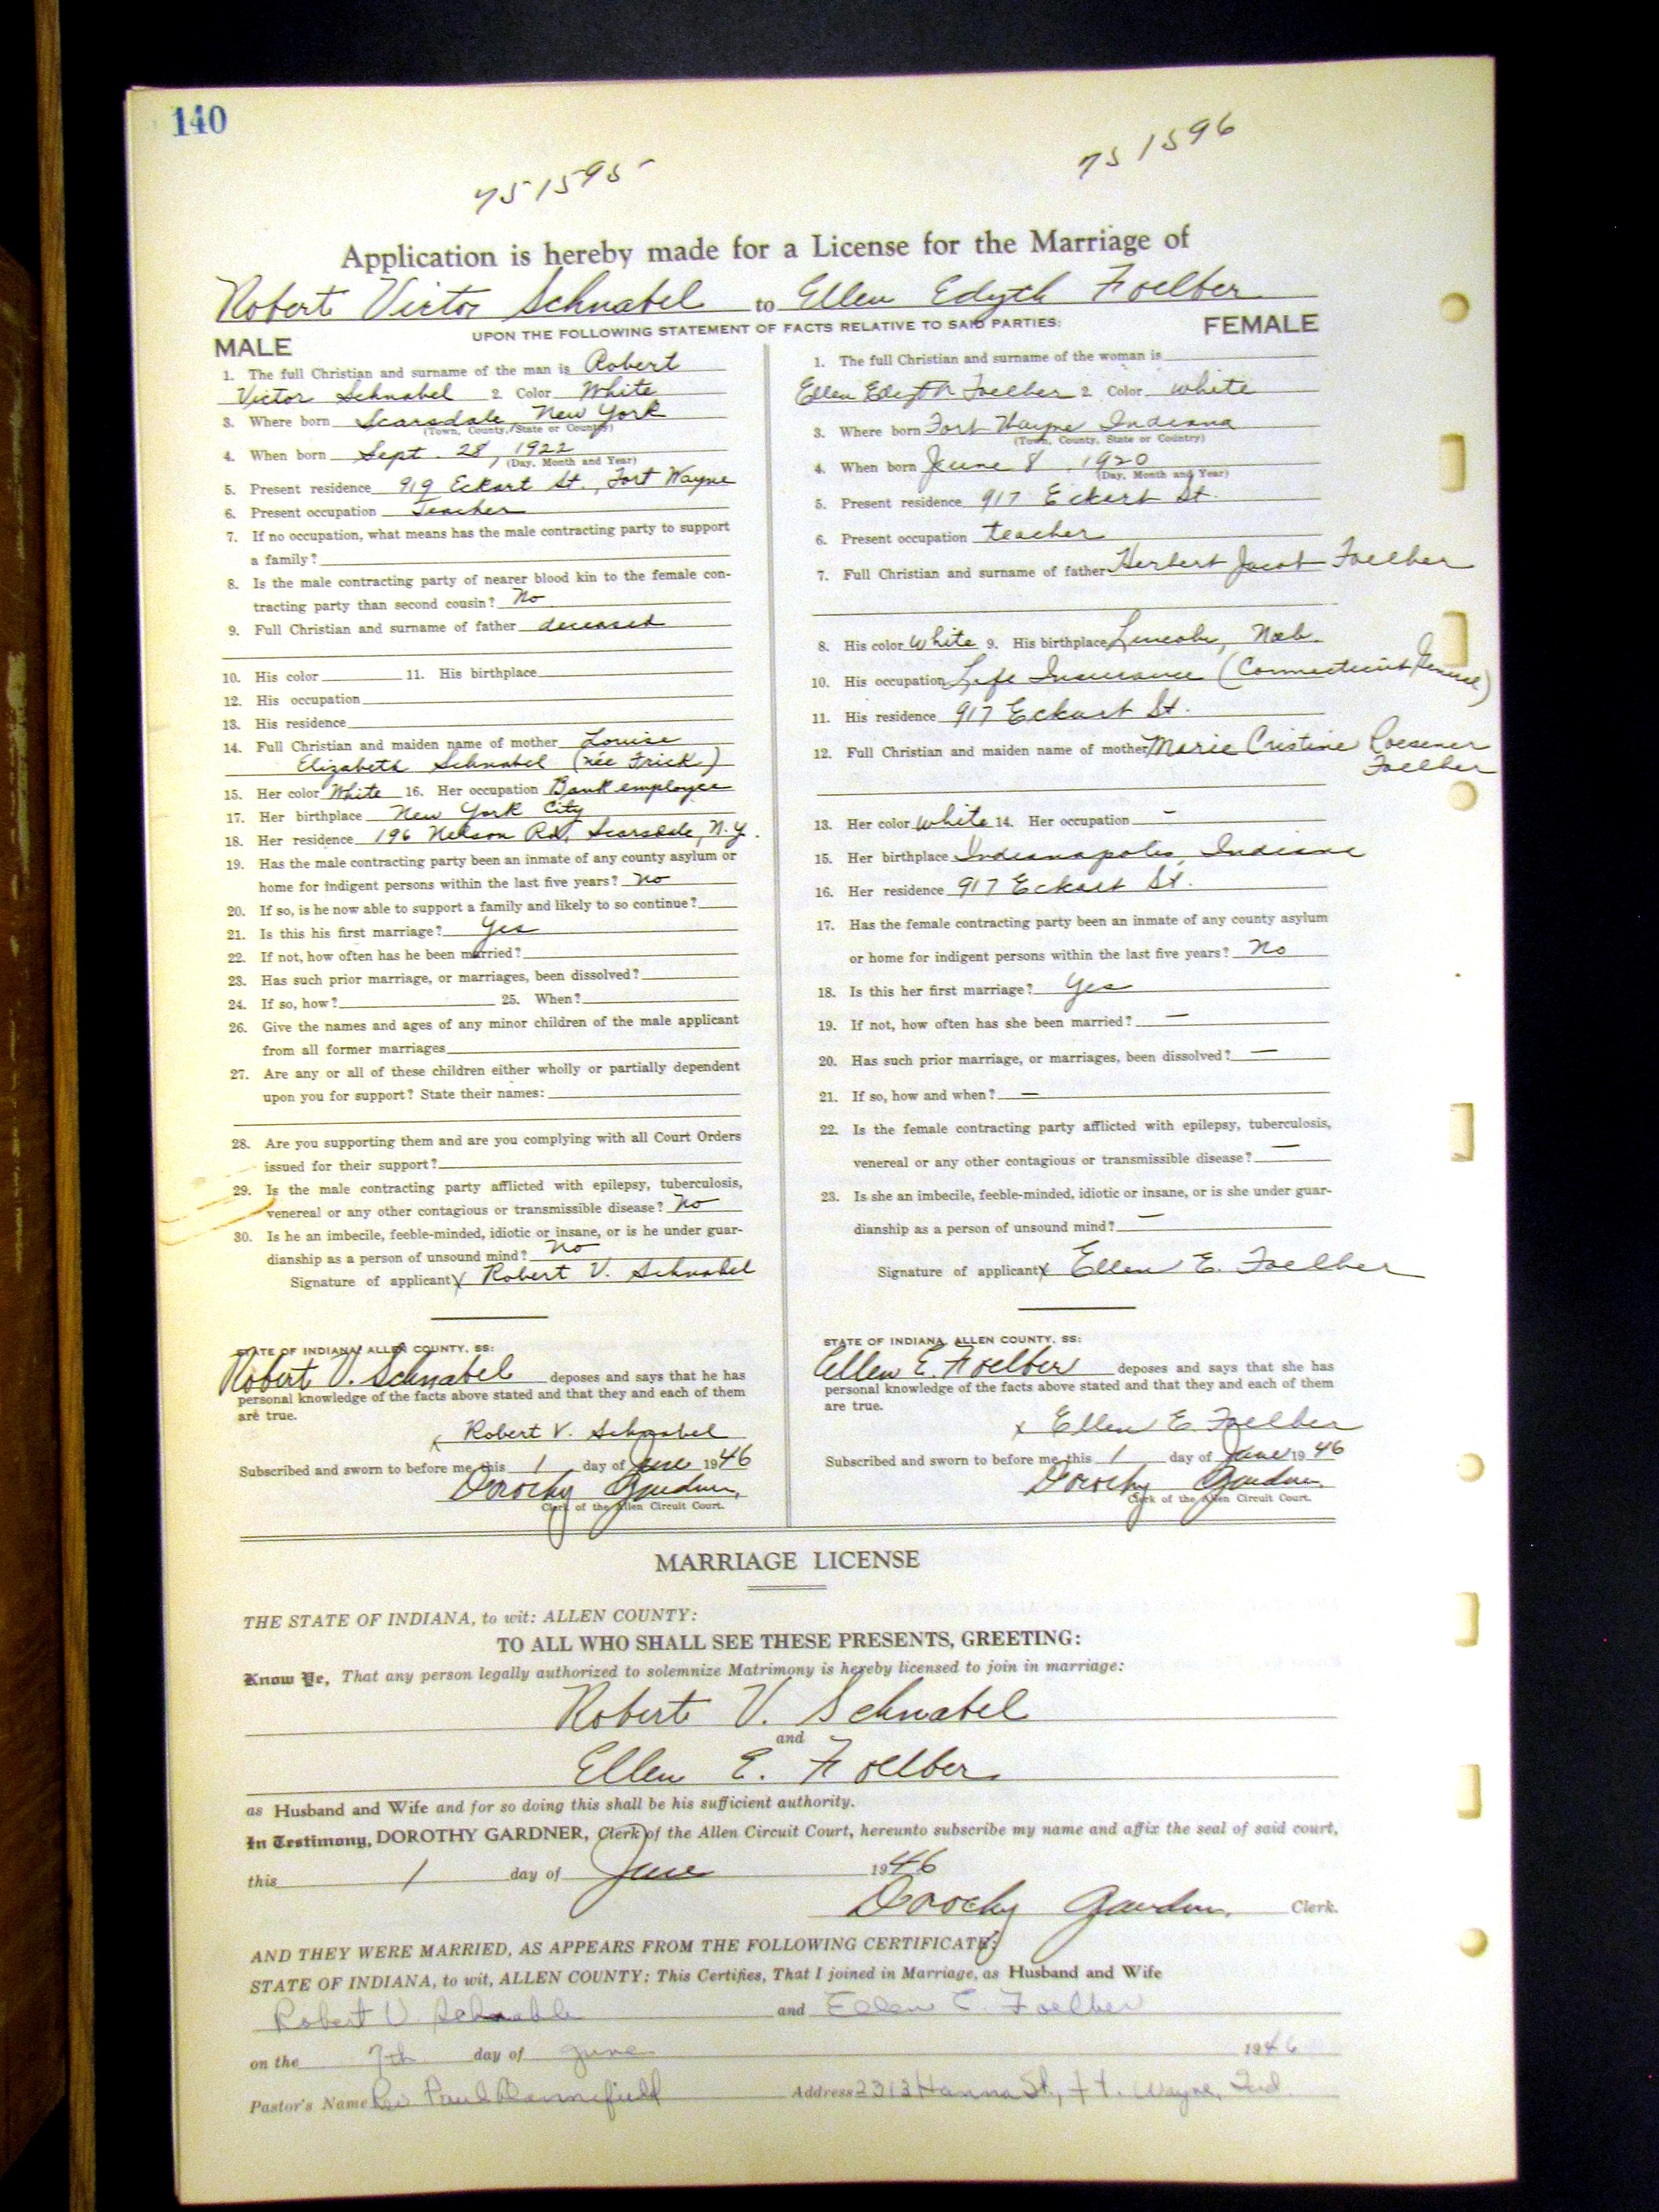 140
751595
751596
Application is hereby made for a License for the Marriage of
Robert Victor Schnabel to Ellen Edyth Foelber
UPON THE FOLLOWING STATEMENT OF FACTS RELATIVE TO SAID PARTIES:
MALE
1. The full Christian and surname of the man is Robert
Victor Schnabel 2. Color White
3. Where born Scarsdale, New York
(Town, County, State or Country)
4. When born Sept. 28, 1922
(Day, Month and Year)
5. Present residence 919 Eckart St., Fort Wayne
6. Present occupation Teacher
7. If no occupation, what means has the male contracting party to support
a family?
8. Is the male contracting party of nearer blood kin to the female con-
tracting party than second cousin? No
9. Full Christian and surname of father deceased
10. His color 11. His birthplace
12. His occupation
13. His residence
14. Full Christian and maiden name of mother Louise
Elizabeth Schnabel (née Frick)
15. Her color White 16. Her occupation Bank employee
17. Her birthplace New York City
18. Her residence 196 Nelson Rd, Scarsdale, N.Y.
19. Has the male contracting party been an inmate of any county asylum or
home for indigent persons within the last five years? No
20. If so, is he now able to support a family and likely to so continue?
21. Is this his first marriage? Yes
22. If not, how often has he been married?
23. Has such prior marriage, or marriages, been dissolved?
24. If so, how? 25. When?
26. Give the names and ages of any minor children of the male applicant
from all former marriages
27. Are any or all of these children either wholly or partially dependent
upon you for support? State their names:
28. Are you supporting them and are you complying with all Court Orders
issued for their support?
29. Is the male contracting party afflicted with epilepsy, tuberculosis,
venereal or any other contagious or transmissible disease? No
30. Is he an imbecile, feeble-minded, idiotic or insane, or is he under guar-
dianship as a person of unsound mind? No
Signature of applicant X Robert V. Schnabel
STATE OF INDIANA, ALLEN COUNTY, SS:
Robert V. Schnabel deposes and says that he has
personal knowledge of the facts above stated and that they and each of them
are true.
x Robert V. Schnabel
Subscribed and sworn to before me this 1 day of June 1946
Dorothy Gardner,
Clerk of the Allen Circuit Court.
FEMALE
1. The full Christian and surname of the woman is
Ellen Edyth Foelber 2. Color white
3. Where born Fort Wayne Indiana
(Town, County, State or Country)
4. When born June 8 1920
(Day, Month and Year)
5. Present residence 917 Eckart St.
6. Present occupation teacher
7. Full Christian and surname of father Herbert Jacob Foelber
8. His color White 9. His birthplace Lincoln, Neb.
10. His occupation Life Insurance (Connecticut General)
11. His residence 917 Eckart St.
12. Full Christian and maiden name of mother Marie Cristine Roesener
Foelber
13. Her color white 14. Her occupation –
15. Her birthplace Indianapolis, Indiana
16. Her residence 917 Eckart St.
17. Has the female contracting party been an inmate of any county asylum
or home for indigent persons within the last five years? No
18. Is this her first marriage? Yes
19. If not, how often has she been married? —
20. Has such prior marriage, or marriages, been dissolved? —
21. If so, how and when? —
22. Is the female contracting party afflicted with epilepsy, tuberculosis,
venereal or any other contagious or transmissible disease? —
23. Is she an imbecile, feeble-minded, idiotic or insane, or is she under guar-
dianship as a person of unsound mind? —
Signature of applicant X Ellen E. Foelber
STATE OF INDIANA, ALLEN COUNTY, SS:
Ellen E. Foelber deposes and says that she has
personal knowledge of the facts above stated and that they and each of them
are true.
x Ellen E. Foelber
Subscribed and sworn to before me this 1 day of June 1946
Dorothy Gardner,
Clerk of the Allen Circuit Court.
MARRIAGE LICENSE
THE STATE OF INDIANA, to wit: ALLEN COUNTY:
TO ALL WHO SHALL SEE THESE PRESENTS, GREETING:
Know Ye, That any person legally authorized to solemnize Matrimony is hereby licensed to join in marriage:
Robert V. Schnabel
and
Ellen E. Foelber
as Husband and Wife and for so doing this shall be his sufficient authority.
In Testimony, DOROTHY GARDNER, Clerk of the Allen Circuit Court, hereunto subscribe my name and affix the seal of said court,
this 1 day of June 1946
Dorothy Gardner, Clerk.
AND THEY WERE MARRIED, AS APPEARS FROM THE FOLLOWING CERTIFICATE:
STATE OF INDIANA, to wit, ALLEN COUNTY: This Certifies, That I joined in Marriage, as Husband and Wife
Robert V. Schnable and Ellen E. Foelber
on the 7th day of June 1946
Pastor's Name Rev Paul Dannefeld Address 2313 Hanna St., Ft. Wayne, Ind.